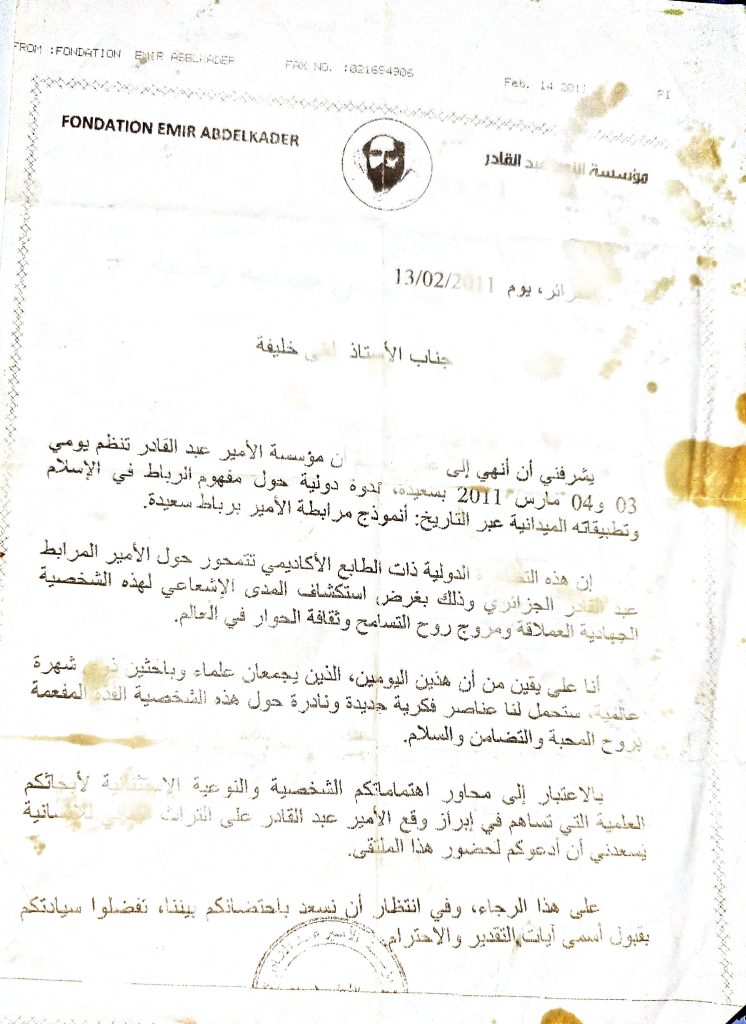 FROM :FONDATION EMIR ABELKADER FAX NO. :021694906 Feb. 14 2011 P1
FONDATION EMIR ABDELKADER
مؤسسة الأمير عبد القادر
يوم 13/02/2011
جناب الأستاذ خليفة
يشرفني أن أنهي إلى أن مؤسسة الأمير عبد القادر تنظم يومي
03 و04 مارس 2011 بسعيدة، ندوة دولية حول مفهوم الرباط في الإسلام
وتطبيقاته الميدانية عبر التاريخ: أنموذج مرابطة الأمير برباط سعيدة.
إن هذه الدولية ذات الطابع الأكاديمي تتمحور حول الأمير المرابط
عبد القادر الجزائري وذلك بغرض استكشاف المدى الإشعاعي لهذه الشخصية
الجهادية العملاقة ومروج روح التسامح وثقافة الحوار في العالم.
أنا على يقين من أن هذين اليومين، الذين يجمعان علماء وباحثين ذوي شهرة
عالمية، ستحمل لنا عناصر فكرية جديدة ونادرة حول هذه الشخصية الفذة المفعمة
بروح المحبة والتضامن والسلام.
بالاعتبار إلى محاور اهتماماتكم الشخصية والنوعية الاستثنائية لأبحاثكم
العلمية التي تساهم في إبراز وقع الأمير عبد القادر على التراث للإنسانية
يسعدني أن أدعوكم لحضور هذا الملتقى.
على هذا الرجاء، وفي انتظار أن نسعد باحتضانكم بيننا، تفضلوا سيادتكم
بقبول أسمى آيات التقدير والاحترام.